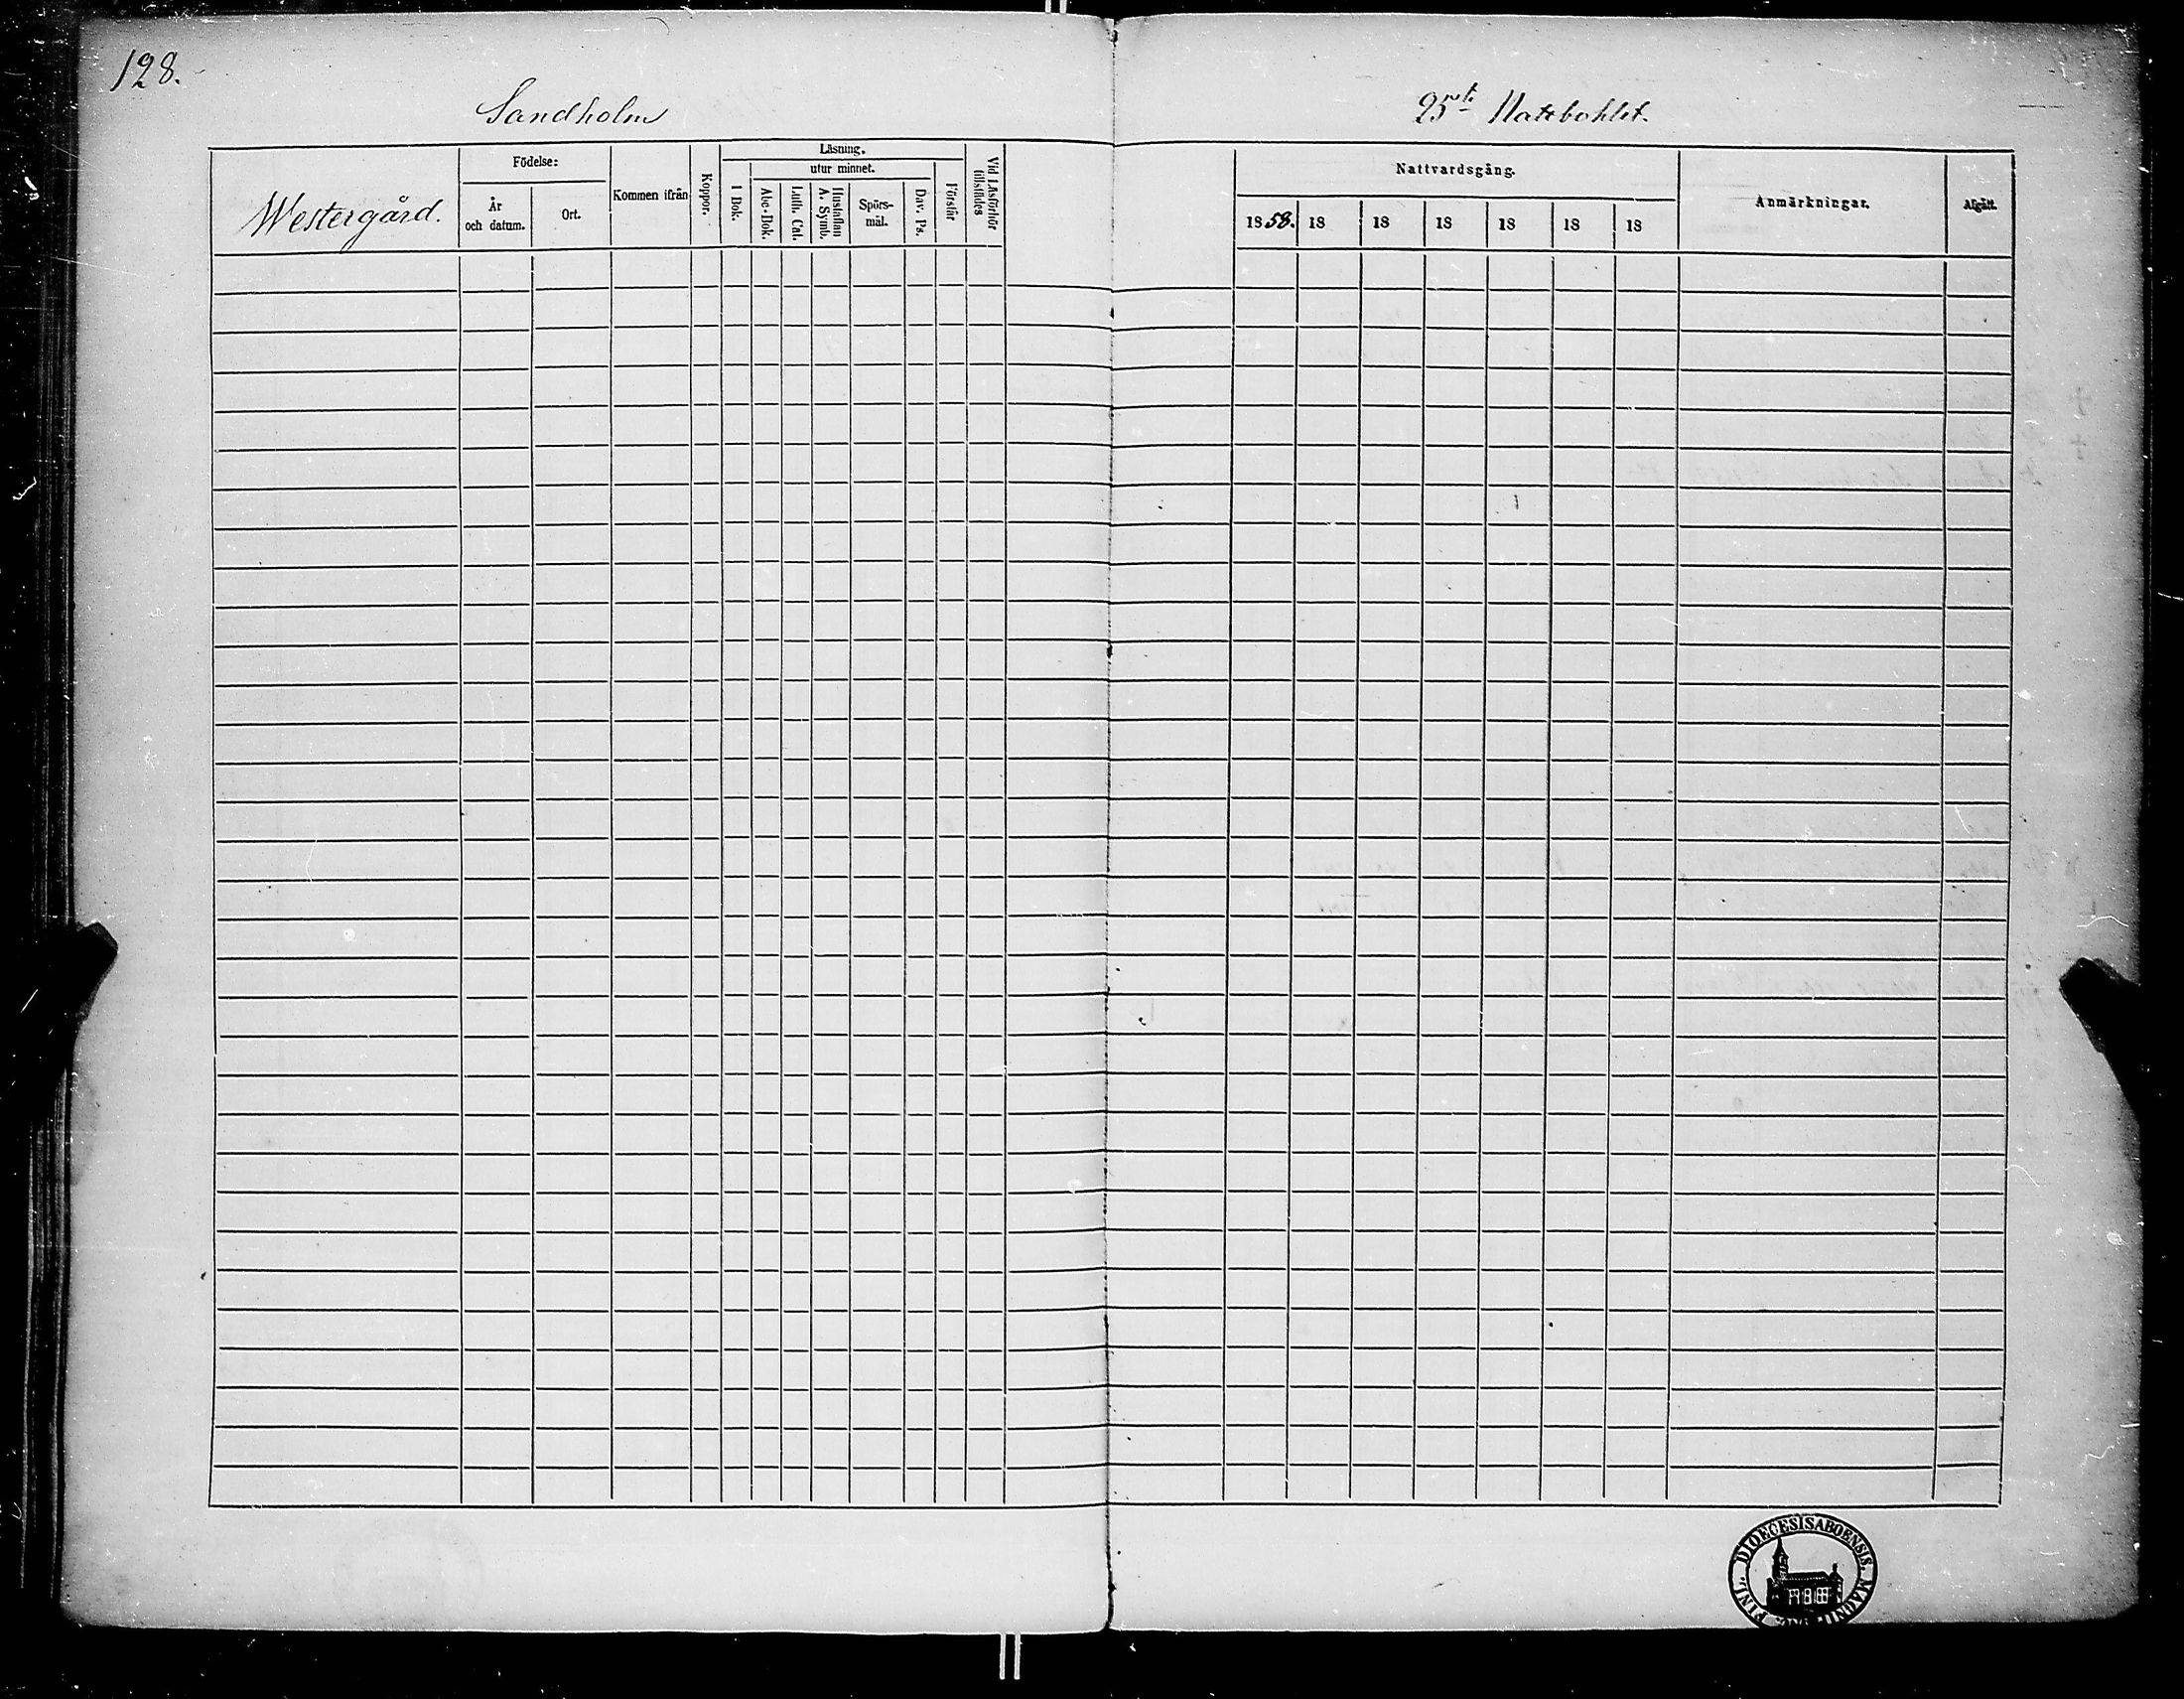 128.
Sandholm
25te Nattbohlet.
Westergård.
Födelse:
År och datum.
Ort.
Kommen ifrån
Koppor.
Läsning.
I Bok.
utur minnet.
Abc-Bok.
Luth. Cat.
Hustaflan A. Symb.
Spörs-mål.
Dav. Ps.
Förstår
Vid Läsförhör tillstädes
Nattvardsgång.
1858. 18 18 18 18 18 18
Anmärkningar.
Afgått.
FINL. DIOECESIS ABOENSIS. MAGNI